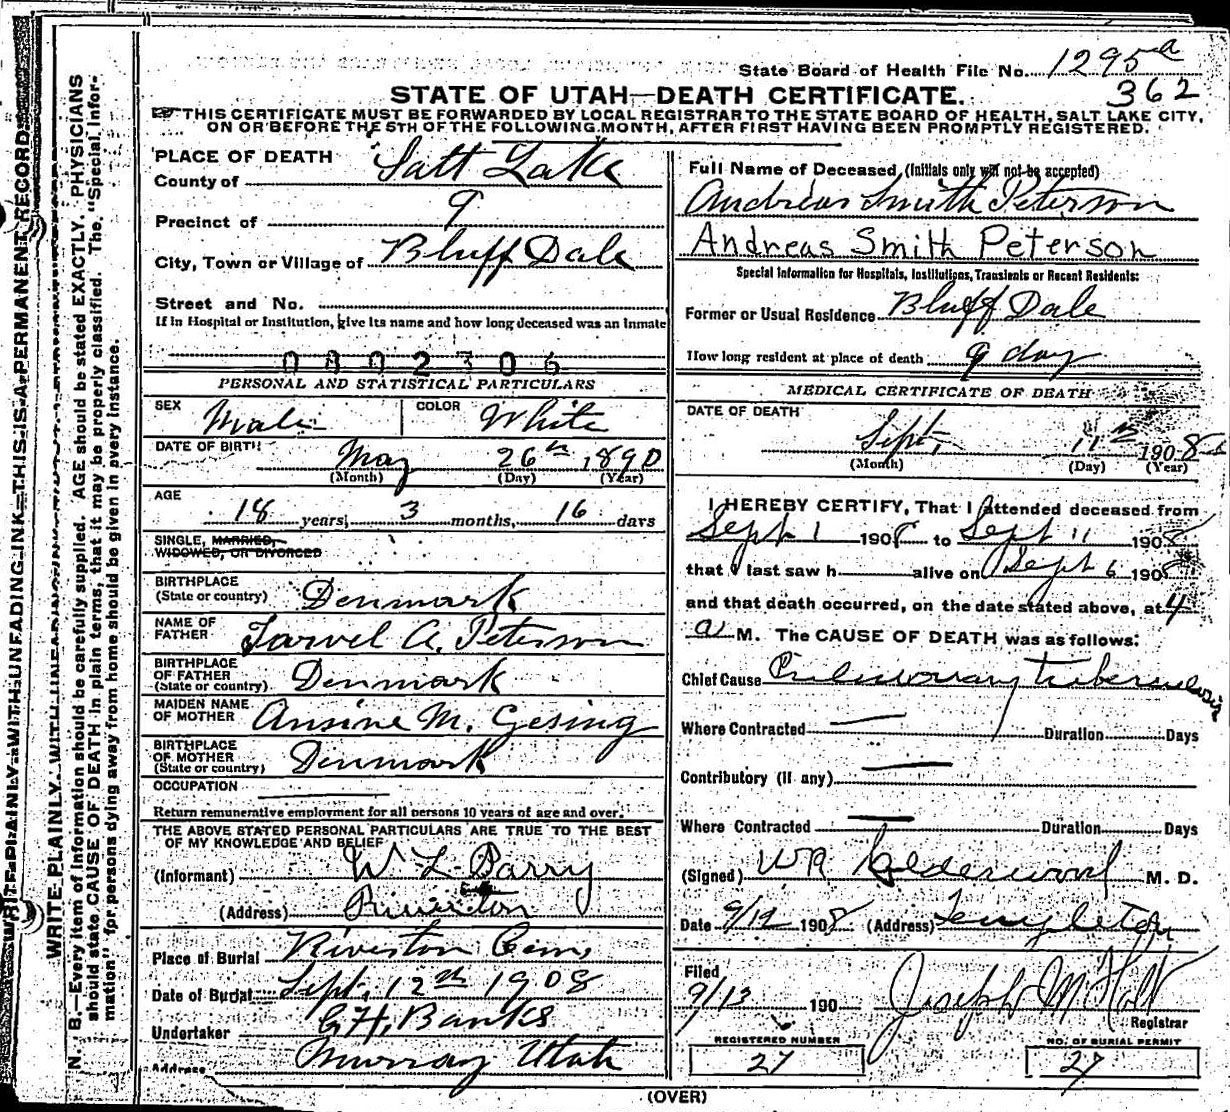 State Board of Health File No. 1295a
362
STATE OF UTAH—DEATH CERTIFICATE.
THIS CERTIFICATE MUST BE FORWARDED BY LOCAL REGISTRAR TO THE STATE BOARD OF HEALTH, SALT LAKE CITY,
ON OR BEFORE THE 5TH OF THE FOLLOWING MONTH, AFTER FIRST HAVING BEEN PROMPTLY REGISTERED.
WRITE PLAINLY WITH UNFADING INK—THIS IS A PERMANENT RECORD
N. B.—Every item of information should be carefully supplied. AGE should be stated EXACTLY. PHYSICIANS
should state CAUSE OF DEATH in plain terms, that it may be properly classified. The "Special Infor-
mation" for persons dying away from home should be given in every instance.
PLACE OF DEATH
County of Salt Lake
Precinct of 9
City, Town or Village of Bluff Dale
Street and No.
If in Hospital or Institution, give its name and how long deceased was an inmate
0802306
PERSONAL AND STATISTICAL PARTICULARS
SEX Male COLOR White
DATE OF BIRTH May 26th 1890
(Month) (Day) (Year)
AGE
18 years, 3 months, 16 days
SINGLE, MARRIED,
WIDOWED, OR DIVORCED
BIRTHPLACE
(State or country) Denmark
NAME OF
FATHER Tarvel A. Peterson
BIRTHPLACE
OF FATHER
(State or country) Denmark
MAIDEN NAME
OF MOTHER Ansine M. Gesing
BIRTHPLACE
OF MOTHER
(State or country) Denmark
OCCUPATION
Return remunerative employment for all persons 10 years of age and over.
THE ABOVE STATED PERSONAL PARTICULARS ARE TRUE TO THE BEST
OF MY KNOWLEDGE AND BELIEF
(Informant) W L Parry
(Address) Riverton
Place of Burial Riverton Cem
Date of Burial Sept. 12th 1908
Undertaker G H. Banks
Address Murray Utah
Full Name of Deceased (Initials only will not be accepted)
Andreas Smith Peterson
Andreas Smith Peterson
Special Information for Hospitals, Institutions, Transients or Recent Residents:
Former or Usual Residence Bluff Dale
How long resident at place of death 9 day
MEDICAL CERTIFICATE OF DEATH
DATE OF DEATH
Sept, 11th 1908
(Month) (Day) (Year)
I HEREBY CERTIFY, That I attended deceased from
Sept 1 1908 to Sept 11 1908
that I last saw h alive on Sept 6 1908
and that death occurred, on the date stated above, at 4
a M. The CAUSE OF DEATH was as follows:
Chief Cause Pulmonary tuberculosis
Where Contracted Duration Days
Contributory (if any)
Where Contracted Duration Days
(Signed) W R Calderwood M. D.
Date 9/12 1908 (Address) Templeton
Filed
9/13 190 Joseph M Holt
Registrar
REGISTERED NUMBER
27
NO. OF BURIAL PERMIT
27
(OVER)